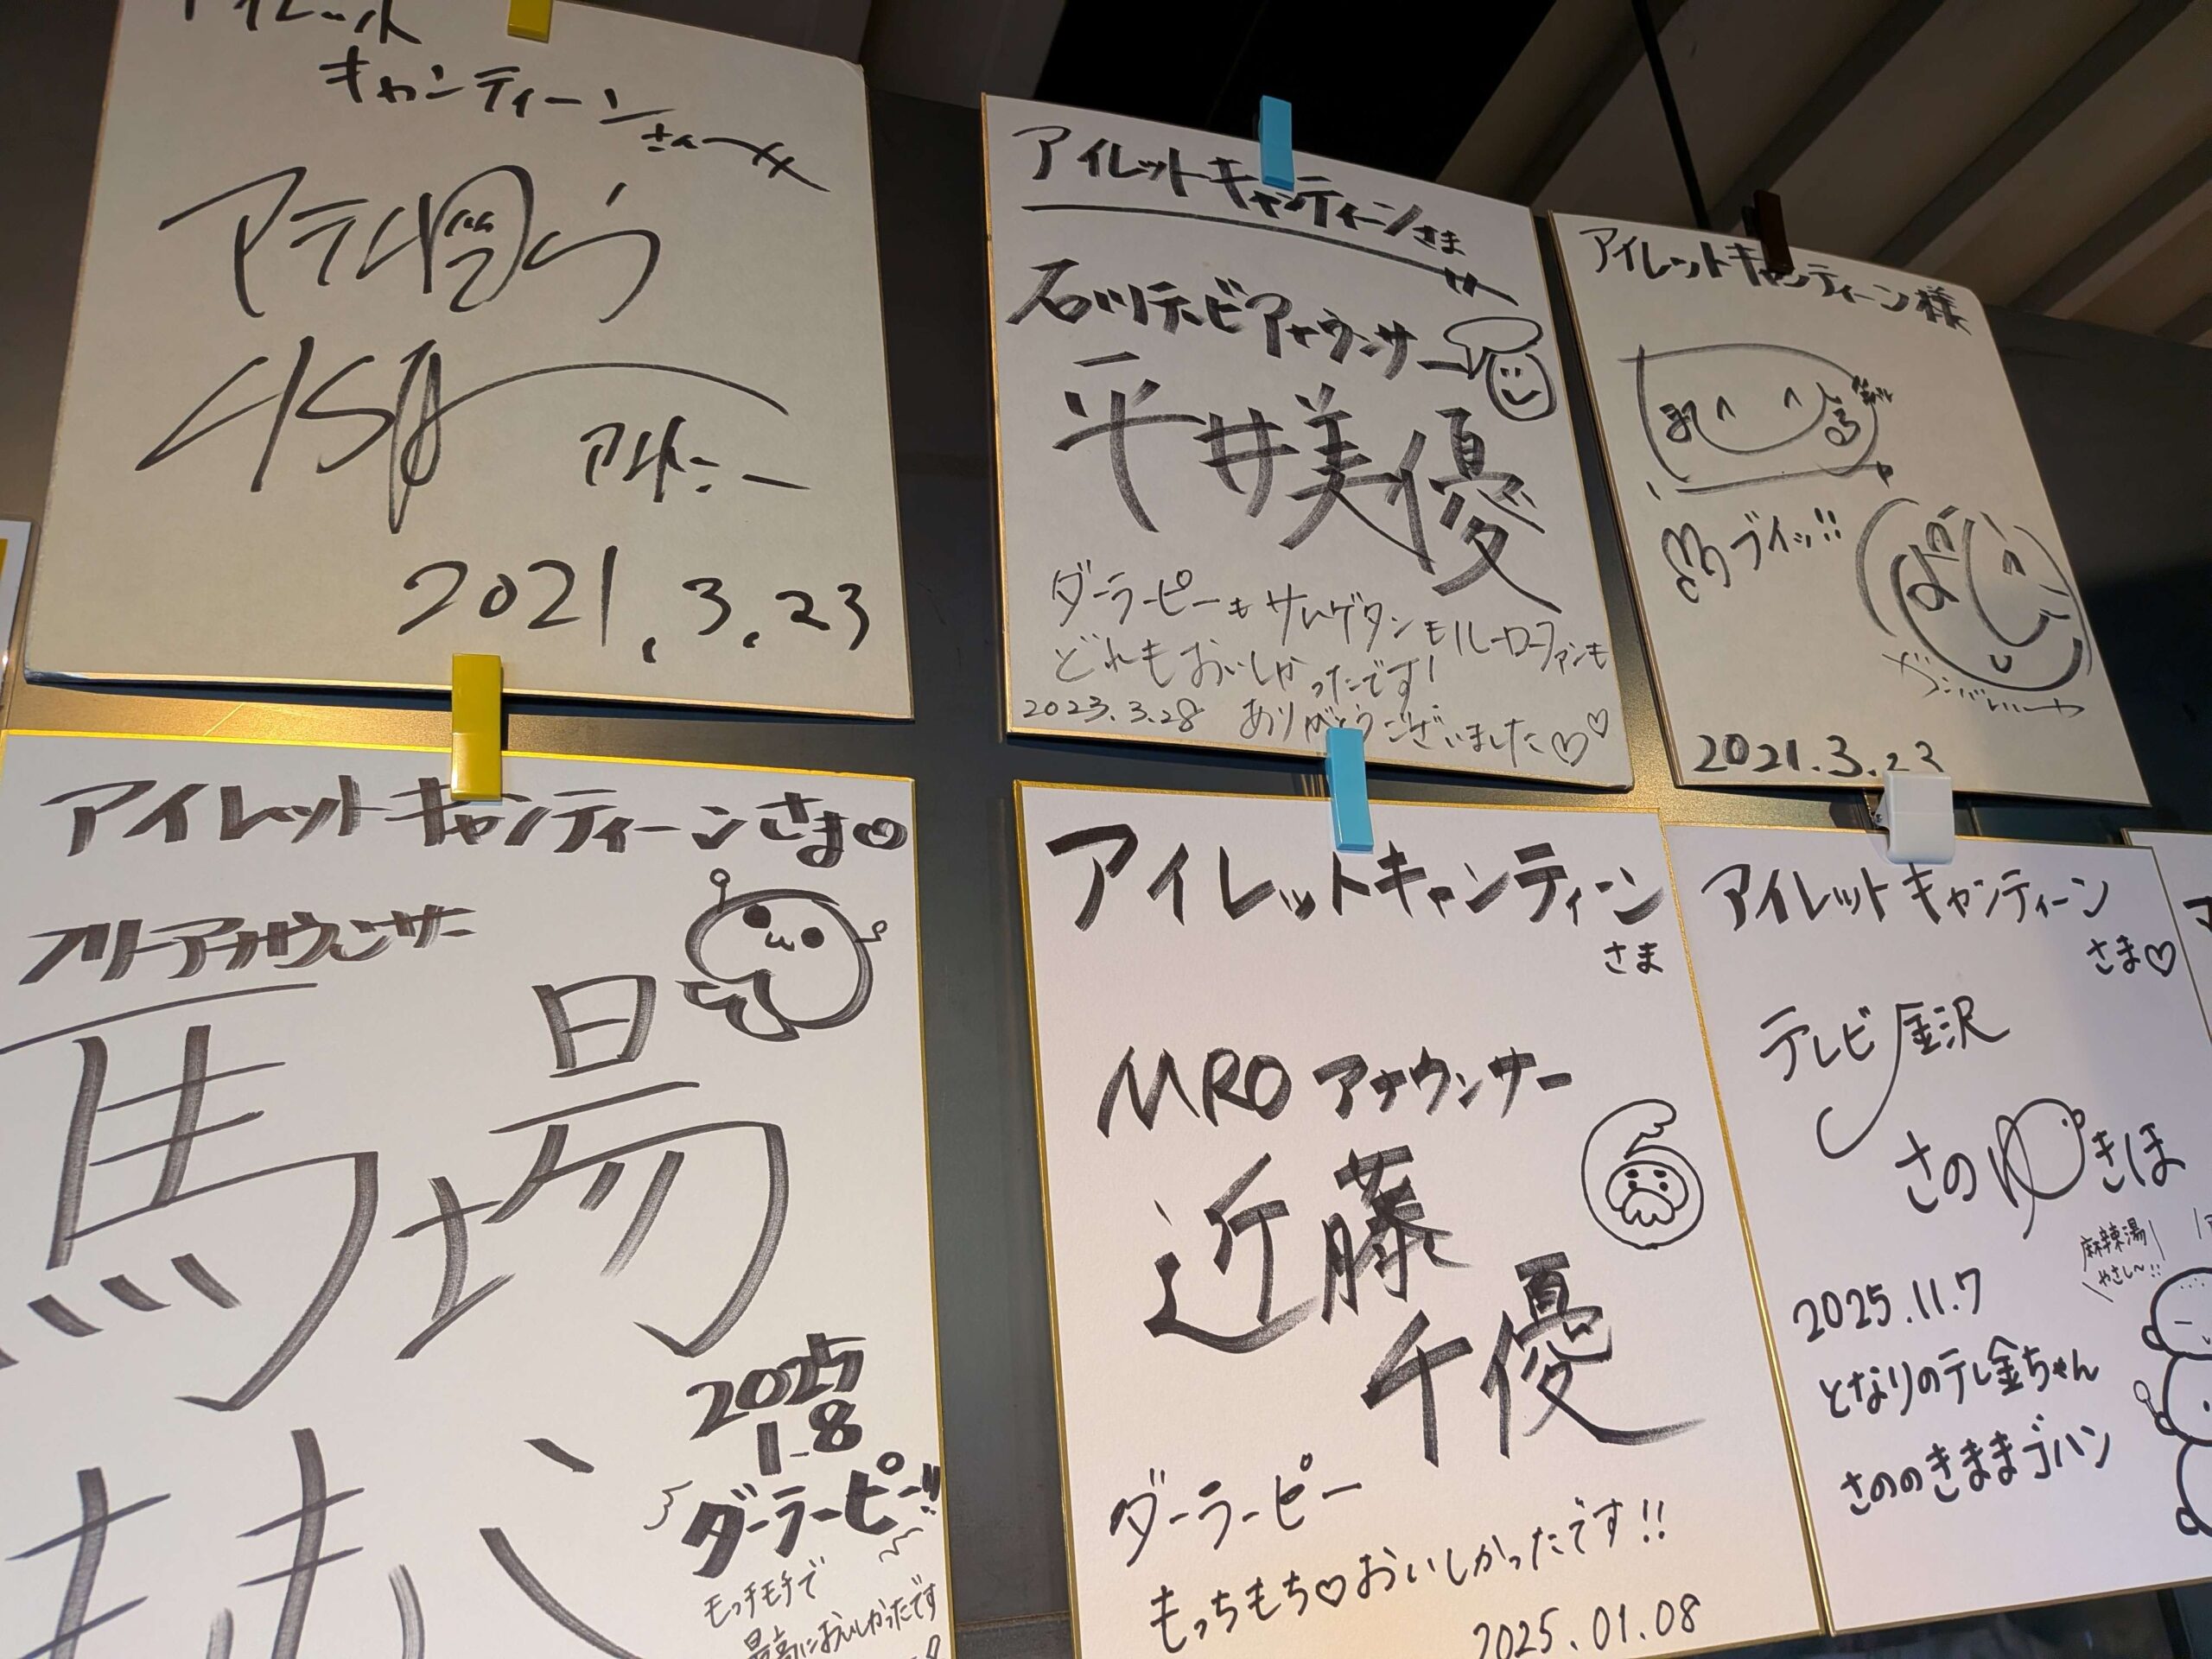 アイレット
キャンティーン
さん
2021.3.23
アイレットキャンティーンさま
石川テレビアナウンサー
平井美優
ダーラーピーもサムゲタンもルーローファンも
どれもおいしかったです!
2023.3.28 ありがとうございました♡♡
アイレットキャンティーン様
ブイッ!!
ガンバレーや
2021.3.23
アイレットキャンティーンさま
フリーアナウンサー
馬場
2025
1.8
ダーラーピー!!
モッチモチで
最高においしかったです
アイレットキャンティーン
さま
MROアナウンサー
近藤
千優
ダーラーピー
もっちもち♡おいしかったです!!
2025.01.08
アイレットキャンティーン
さま♡
テレビ金沢
さのゆきほ
麻辣湯
やさし〜!!
2025.11.7
となりのテレ金ちゃん
さののきままゴハン